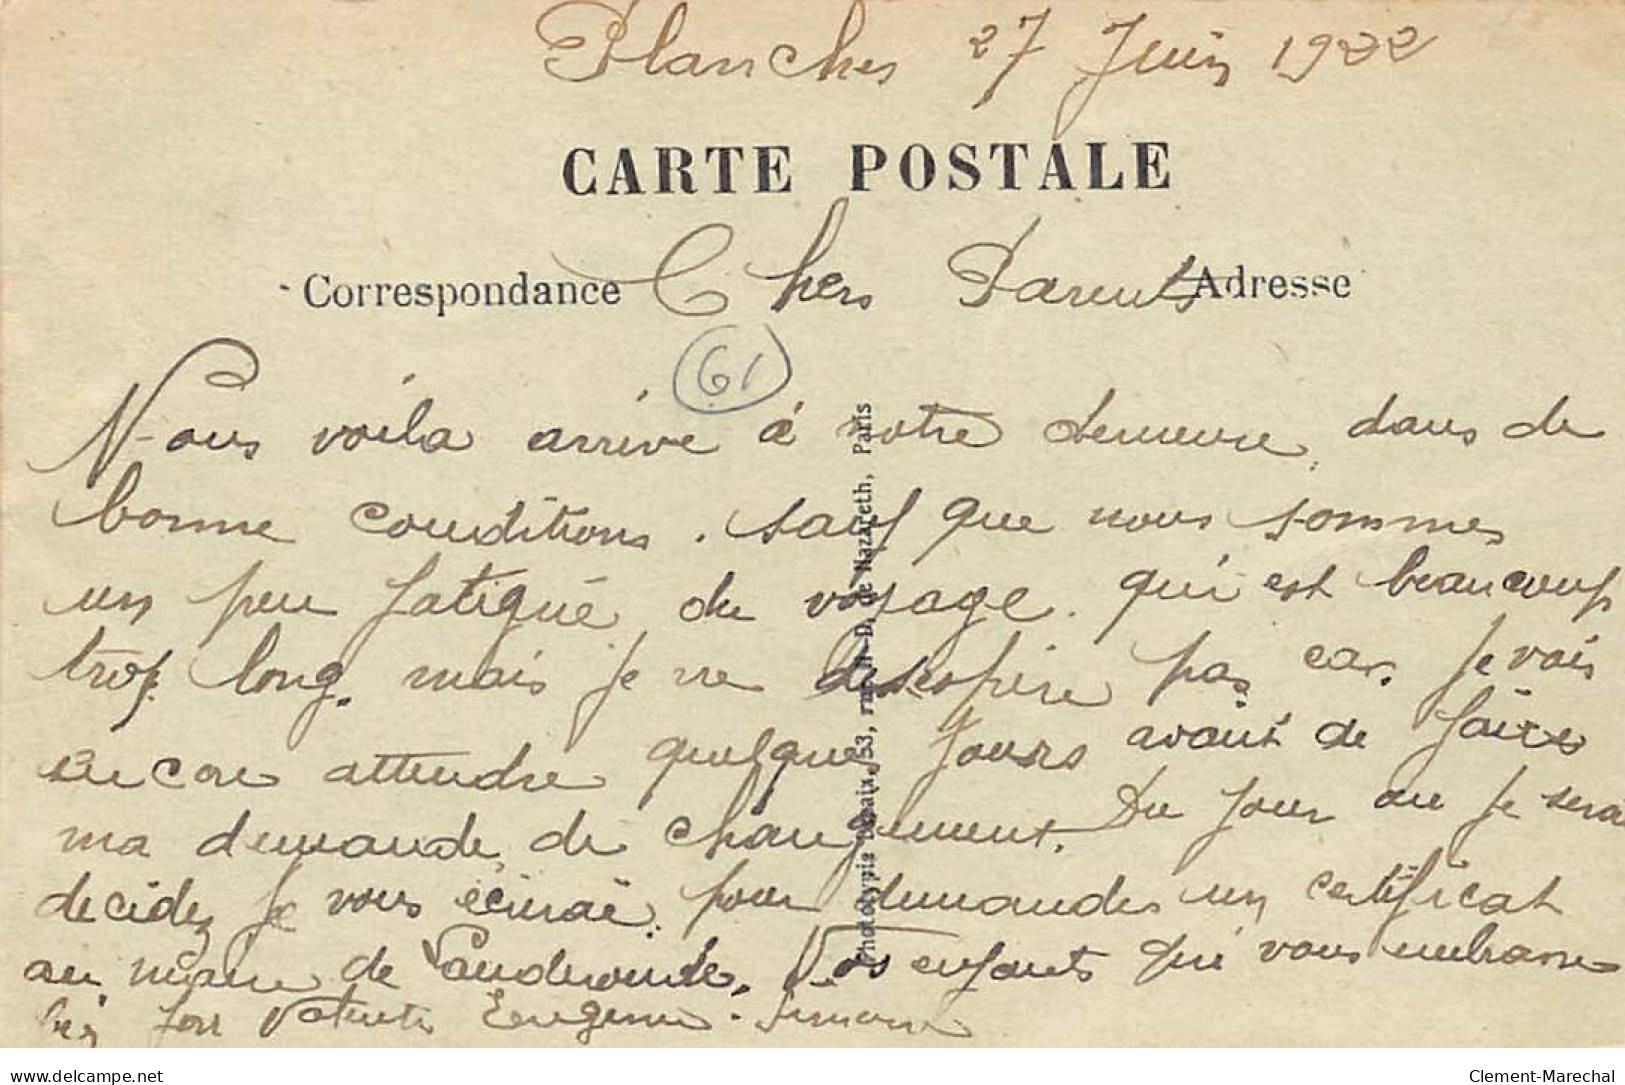 Planches 27 Juin 1922
CARTE POSTALE
Correspondance Chers Parents Adresse
61
Nous voila arrivé à notre demeure, dans de
bonne conditions. sauf que nous sommes
un peu fatigué du voyage. qui est beaucoup
trop long. mais je ne desespère pas car. Je vais
encore attendre quelques jours avant de faire
ma demande de changement. Du jour ou je serai
decidez je vous écirrai. pour demandes un certificat
au maire de Vos enfants qui vous embrasse
bien fort Eugene. Simone
Phototypie 53, rue N-D. de Nazareth, Paris
Clement-Marechal